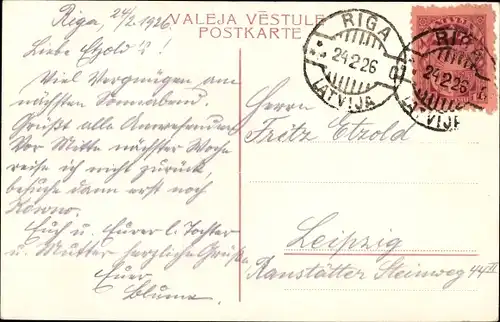 Riga 24/2. 1926.
VALĒJA VĒSTULE
POSTKARTE
RIGA
24.2.26
LATVIJA
RIGA
24.2.26
LATVIJA
Liebe Etzold's!
Viel Vergnügen am
nächsten Sonnabend.
Grüßt alle Anwesenden
Vor Mitte nächster Woche
reise ich nicht zurück,
besuche dann erst noch
Kowno.
Euch u. Eurer l. Tochter
u. Mutter herzliche Grüße
Euer
Blume
Herrn
Fritz Etzold
Leipzig
Ranstätter Steinweg 44 II